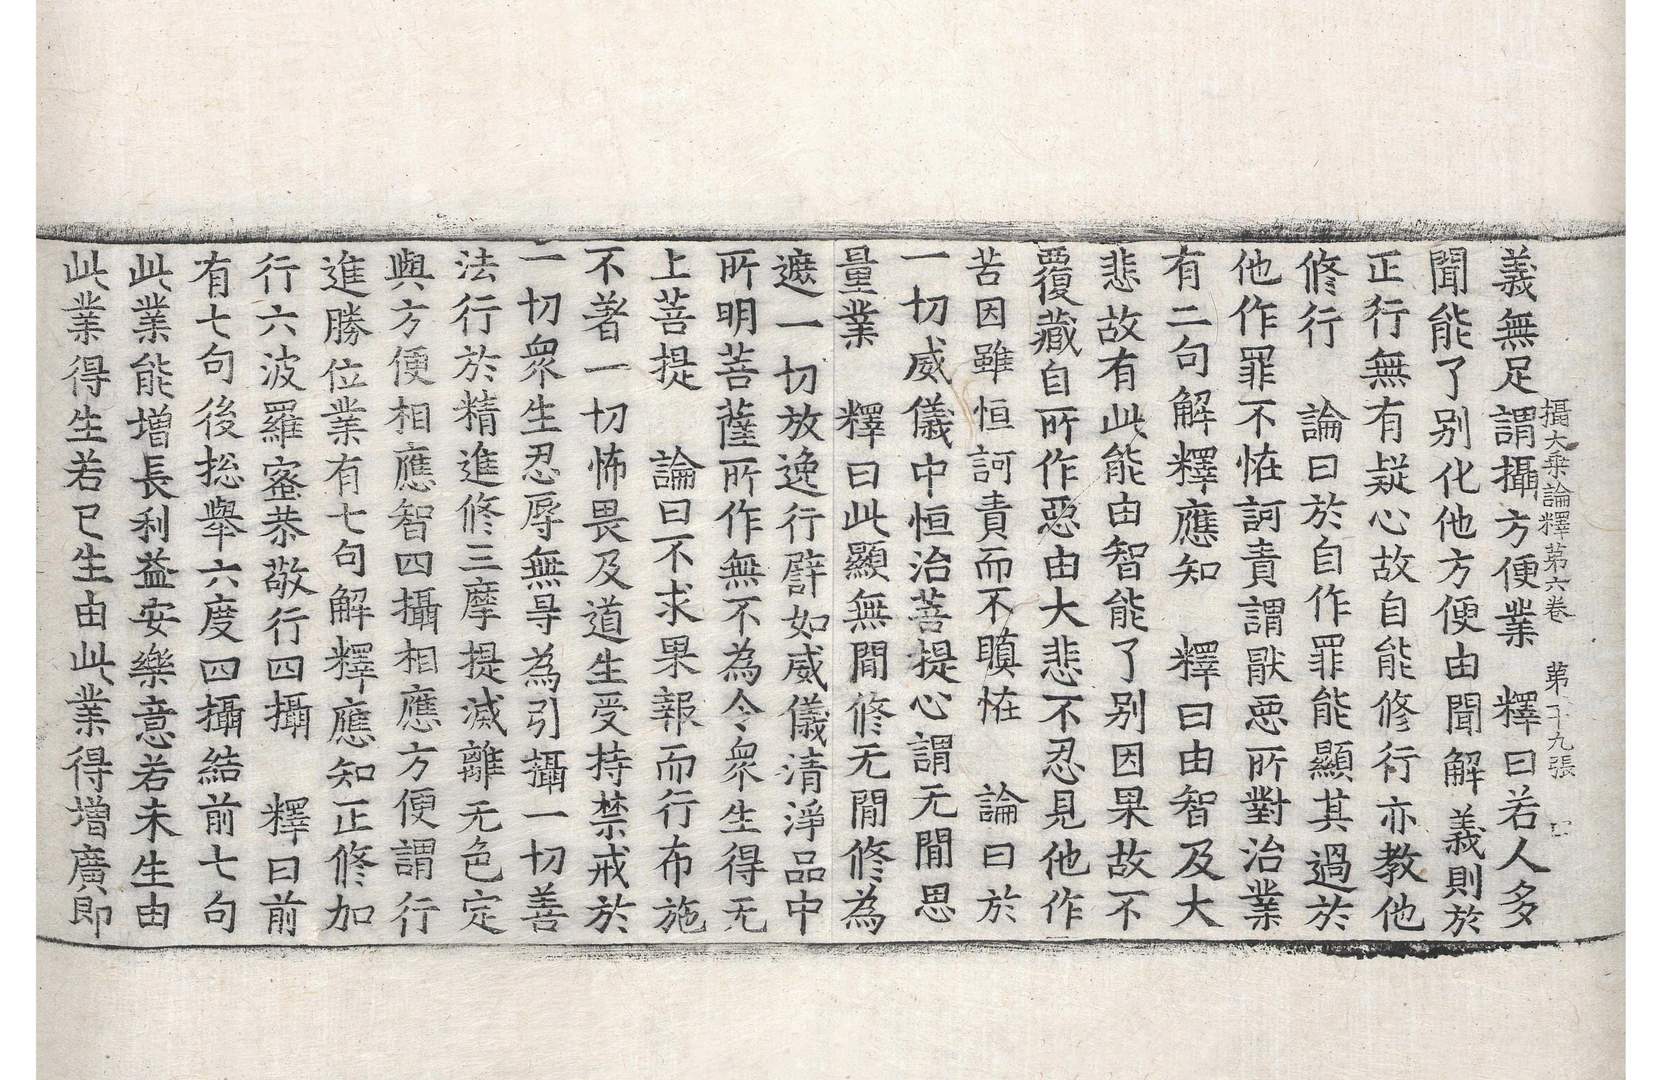 攝大乗論釋第六卷　第十九張
義無足謂攝方便業　釋曰若人多
聞能了別化他方便由聞解義則於
正行無有疑心故自能修行亦教他
修行　論曰於自作罪能顯其過於
他作罪不恠訶責謂猒惡所對治業
有二句解釋應知　釋曰由智及大
悲故有此能由智能了別因果故不
覆藏自所作惡由大悲不忍見他作
苦因雖恒訶責而不瞋恠　論曰於
一切威儀中恒治菩提心謂无間思
量業　釋曰此顯無間修无間修為
遮一切放逸行譬如威儀清淨品中
所明菩薩所作無不為令衆生得无
上菩提　論曰不求果報而行布施
不著一切怖畏及道生受持禁戒於
一切衆生忍辱無㝵為引攝一切善
法行於精進修三摩提滅離无色定
與方便相應智四攝相應方便謂行
進勝位業有七句解釋應知正修加
行六波羅蜜恭敬行四攝　釋曰前
有七句後捴舉六度四攝結前七句
此業能增長利益安樂意若未生由
此業得生若已生由此業得增廣即